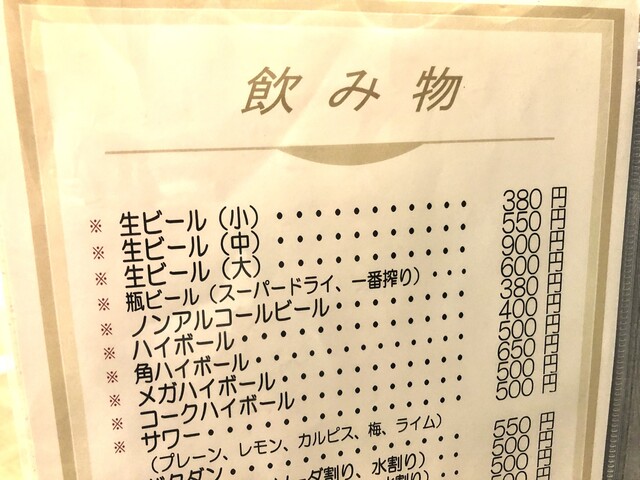 飲み物
※ 生ビール（小）・・・・・・・・・・・ 380円
※ 生ビール（中）・・・・・・・・・・・ 550円
※ 生ビール（大）・・・・・・・・・・・ 900円
※ 瓶ビール（スーパードライ、一番搾り）・・ 600円
※ ノンアルコールビール・・・・・・・・ 380円
※ ハイボール・・・・・・・・・・・・ 400円
※ 角ハイボール・・・・・・・・・・・ 500円
※ メガハイボール・・・・・・・・・・ 650円
※ コークハイボール・・・・・・・・・ 500円
※ サワー・・・・・・・・・・・・・ 500円
（プレーン、レモン、カルピス、梅、ライム）
バクダン・・・・・・・・・・・・ 550円
ダ割り、水割り）・・・ 500円
500円
500